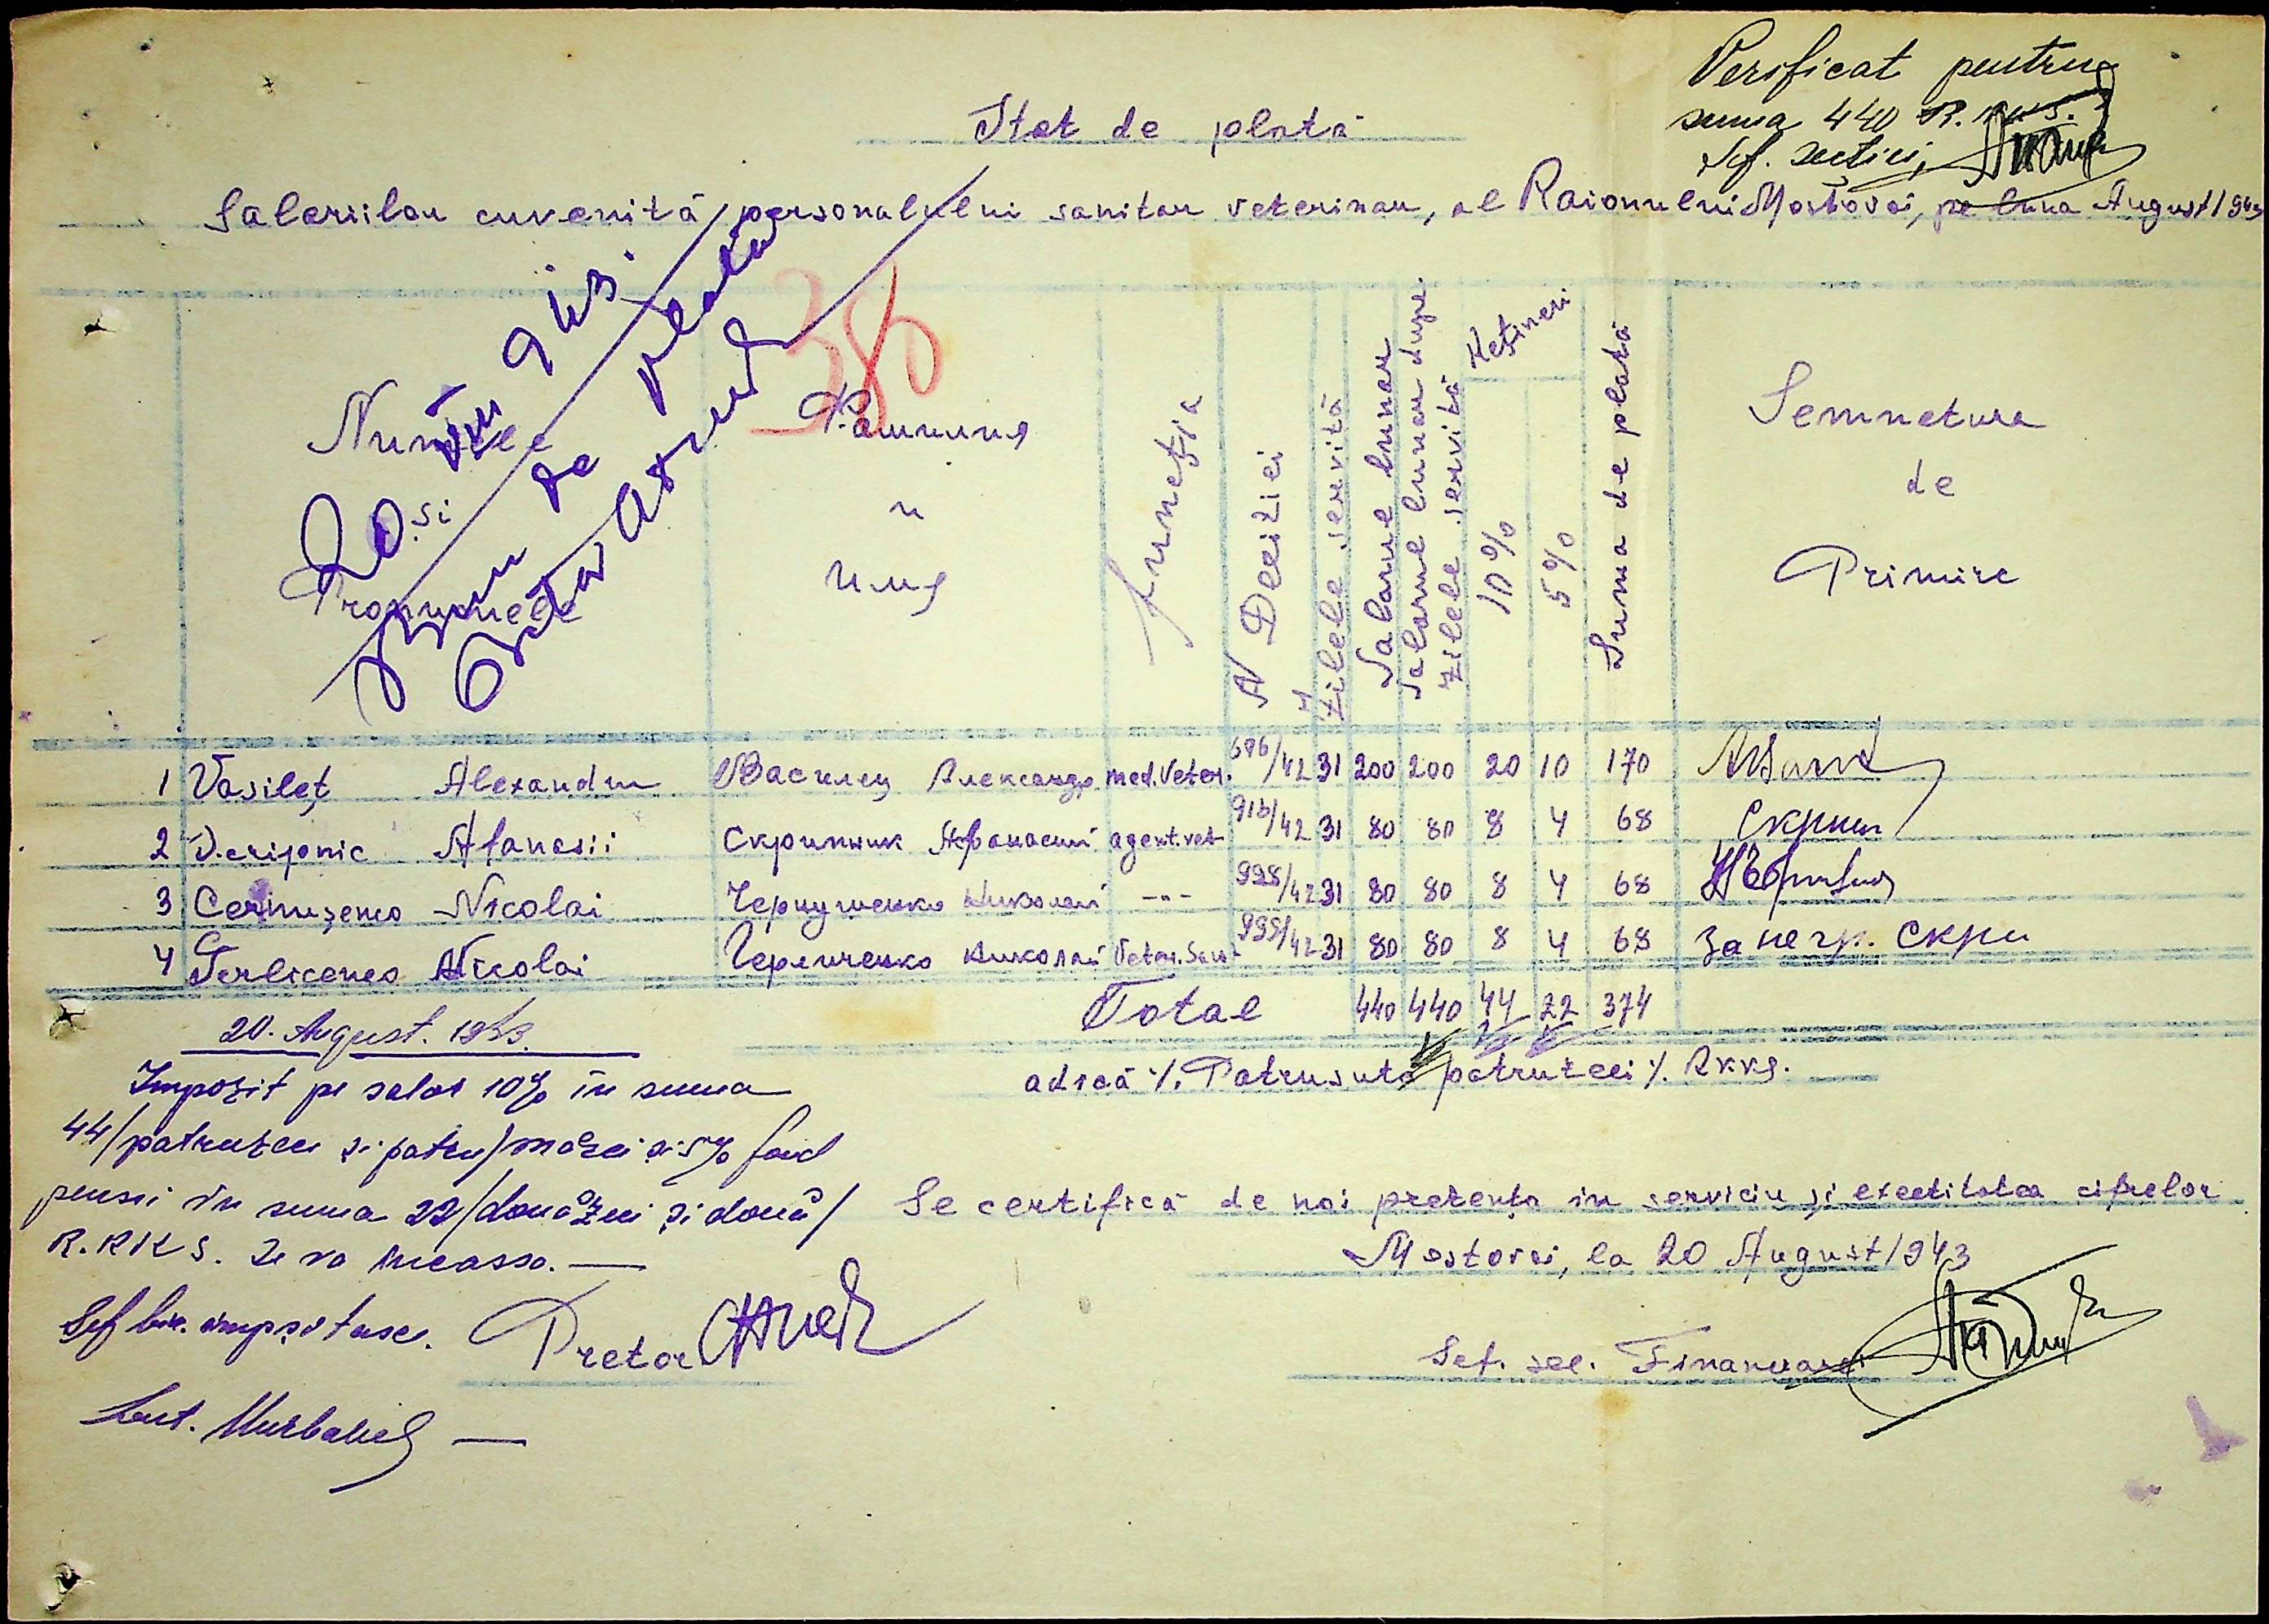 Verificat pentru
suma 440 R. KKS.
Șef. secției,
Stat de plată
Salariilor cuvenită personalului sanitar veterinar, al Raionului Mostovoi, pe luna August/1943
38
Numele
și
Pronumele
Фамилия
и
Имя
Funcția
N Deciziei
Zilele servită
Salarul lunar
Salarul lunar dupe
zilele servită
Rețineri
10%
5%
Suma de plată
Semnetura
de
Primire
Bun de plată
1 Vasileț Alexandru Василец Александр med. Veter. 696/42 31 200 200 20 10 170
2 Scripnic Afanasii Скрипник Афанасий agent. vet 916/42 31 80 80 8 4 68 Скрип
3 Cernușenco Nicolai Чернушенко Николай -"- 998/42 31 80 80 8 4 68
4 Terlicenco Nicolai Терличенко Николай Veter. San 999/42 31 80 80 8 4 68 За негр. Скри
Total 440 440 44 22 374
20. August. 1943.
adică %. Patrusute patruzeci %. RKKS.
Impozit pe salar 10% în suma
44/patruzeci și patru/mărci și 5% fond
pensii în suma 22/douăzeci și două/
R.KKS. Se va încassa. —
Se certifică de noi prezența in serviciu și exectitatea cifrelor
Mostovoi, la 20 August/943
Șef bir. impozitare.
Pretor
Șef. sec. Financiară